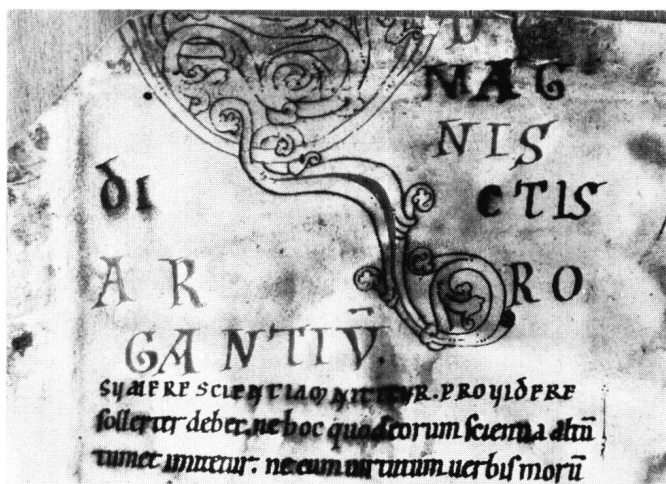 MAG
NIS
DI CTIS
AR RO
GANTIŪ.
SUMERE SCIENTIAM NITITUR. PROUIDERE
sollerter debet. ne hoc quod eorum scientia altū
tumet imitetur: ne cum uirtutum uerbis morū